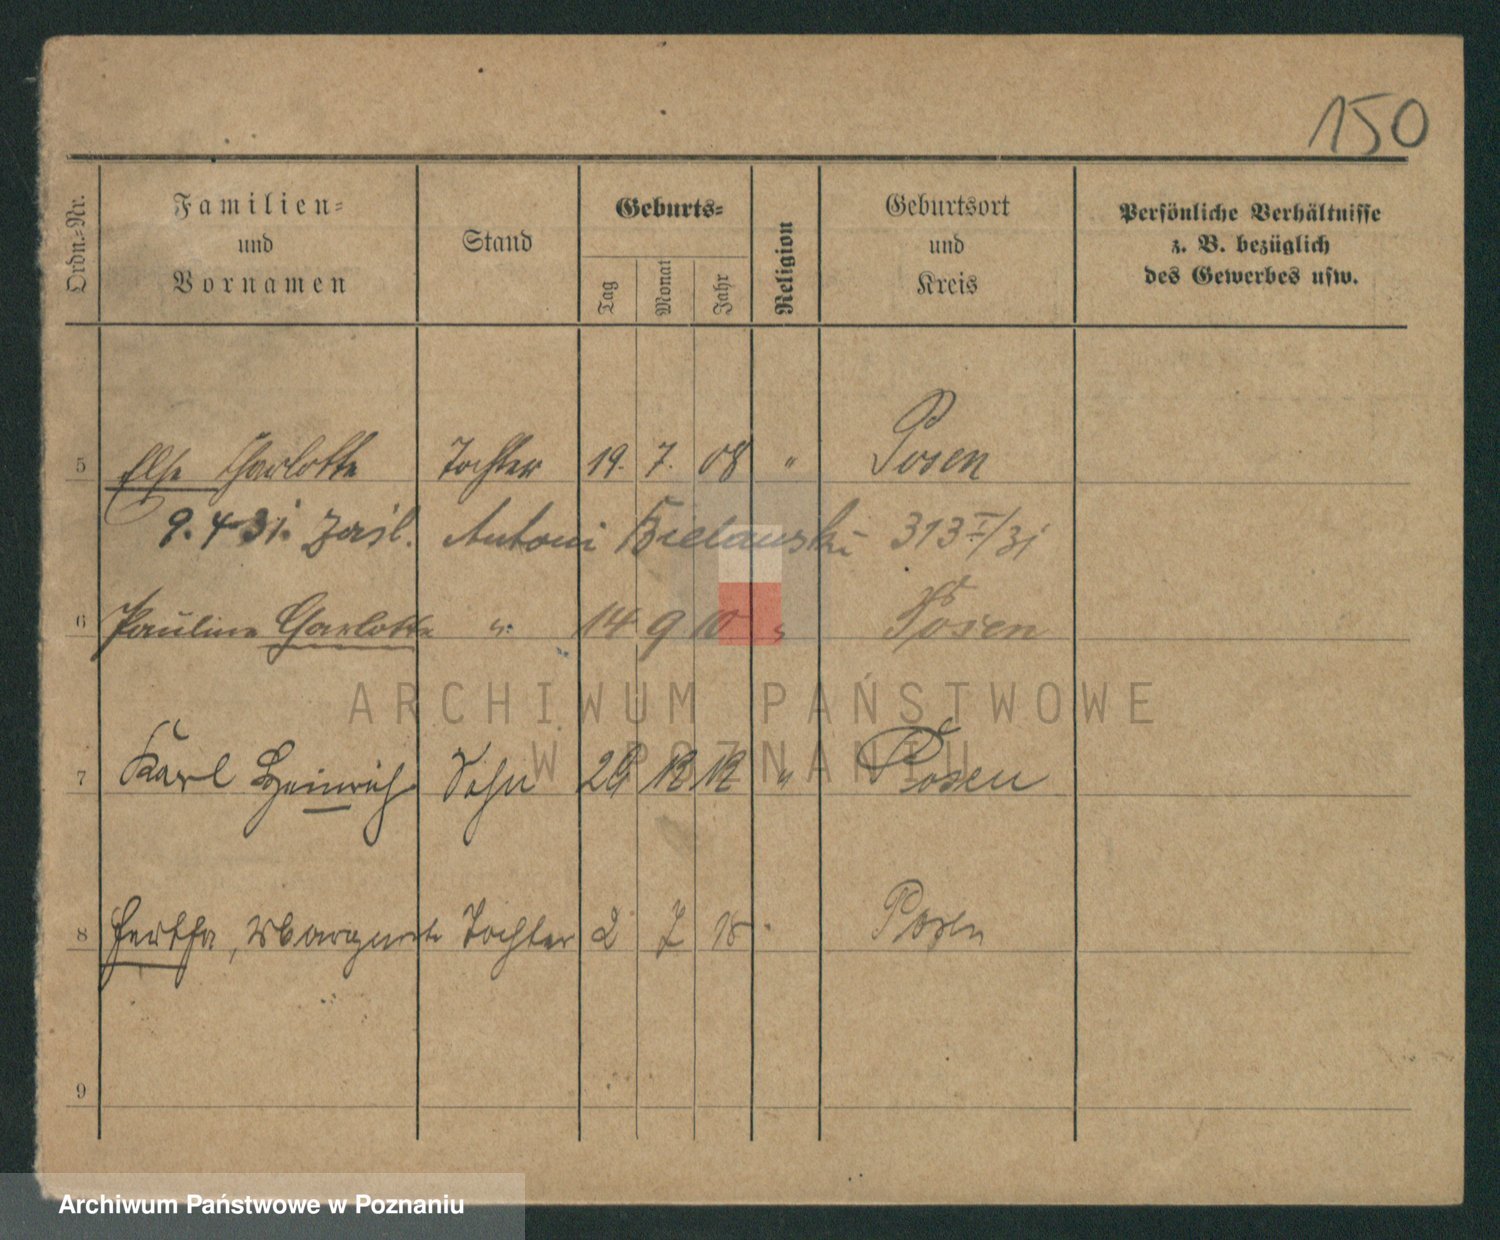 150
Ordn.=Nr.
Familien=
und
Vornamen
Stand
Geburts=
Tag
Monat
Jahr
Religion
Geburtsort
und
Kreis
Persönliche Verhältnisse
z. B. bezüglich
des Gewerbes usw.
5 Else Charlotte Tochter 19. 7. 08 " Posen
9. 4 31. Zaśl. Antoni Bielawski 313 I/31
6 Pauline Charlotte " 14 9 10 " Posen
ARCHIWUM PAŃSTWOWE
W POZNANIU
7 Karl Heinrich Sohn 29 12 12 " Posen
8 Hertha, Margarete Tochter 2 7 15 Posen
9
Archiwum Państwowe w Poznaniu